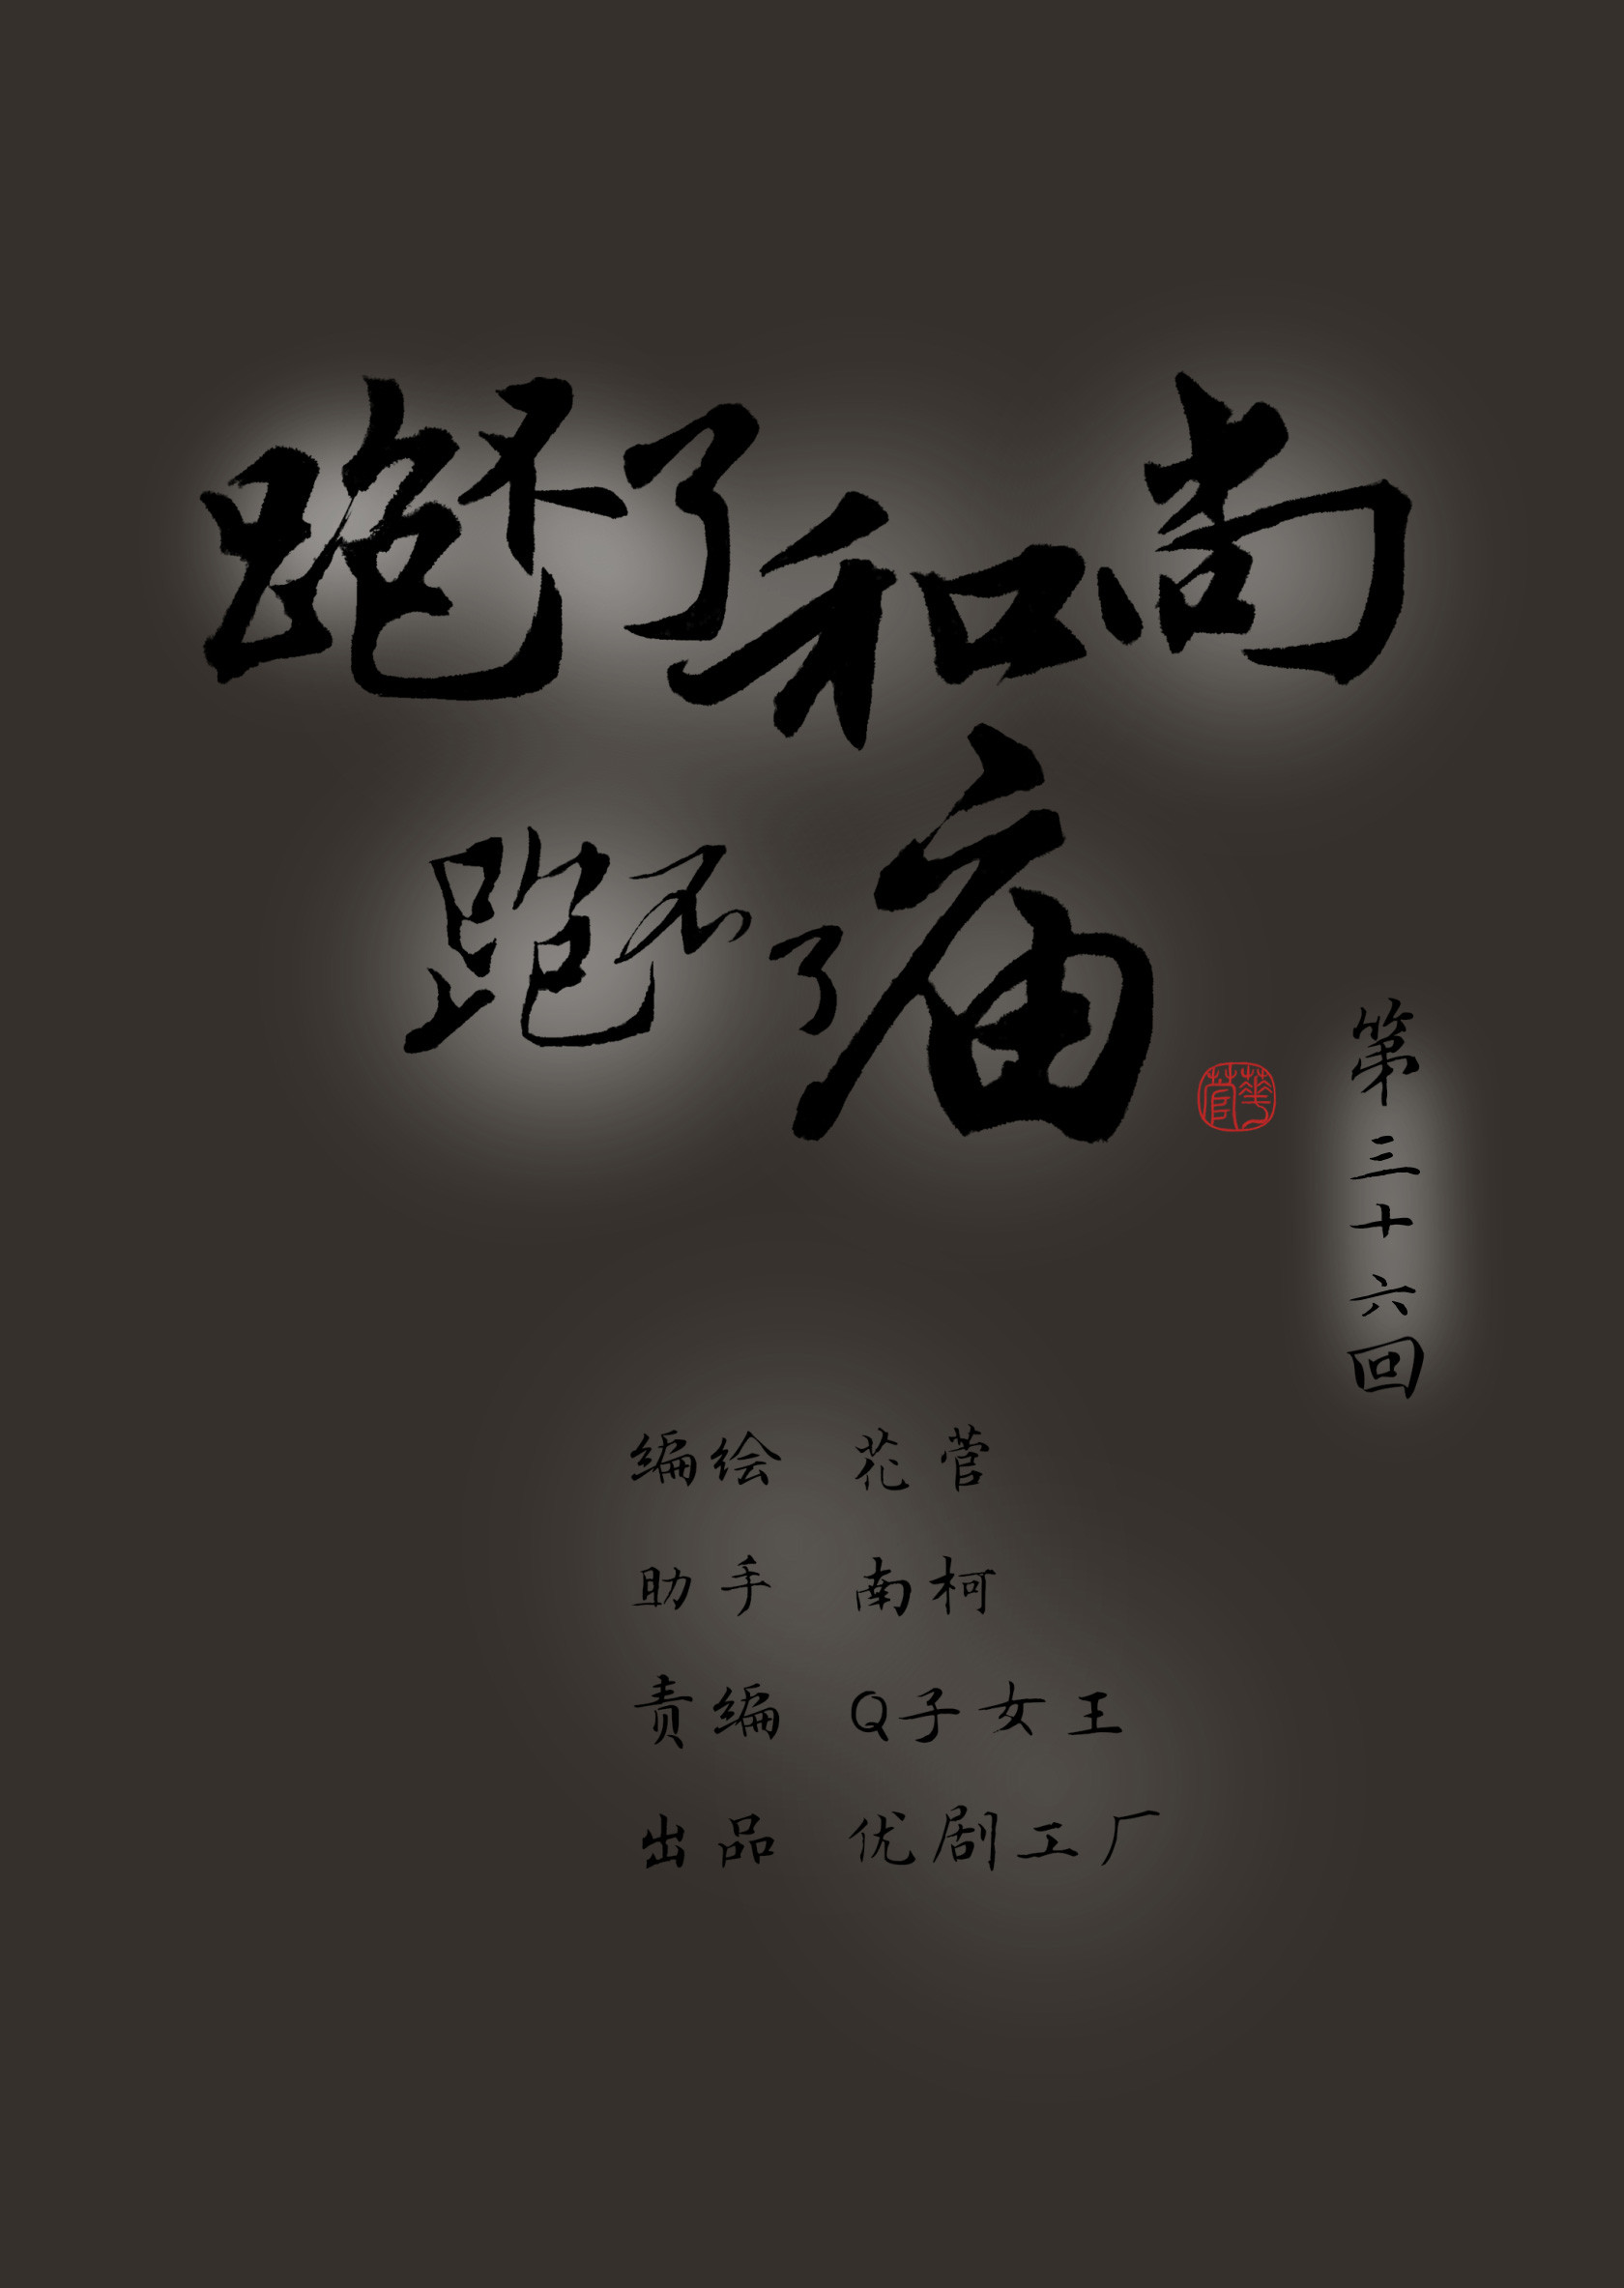 跑不了和尚
跑不了庙
第三十六回
编绘 花菅
助手 南柯
责编 Q子女王
出品 优剧工厂